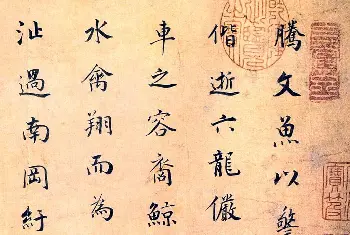 騰文魚以警
偕逝六龍儼
車之容裔鯨
水禽翔而為
沚過南岡紆